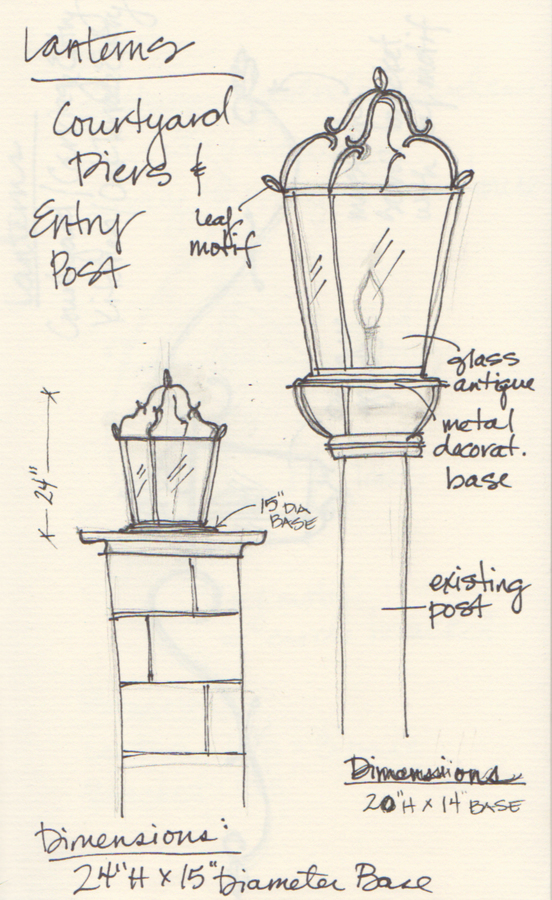 Lanterns
Courtyard
Piers &
Entry
Post
leaf
motif
glass
antique
metal
decorat.
base
24"
15" DIA
BASE
existing
post
Dimensions
20"H x 14" BASE
Dimensions:
24"H x 15" Diameter Base